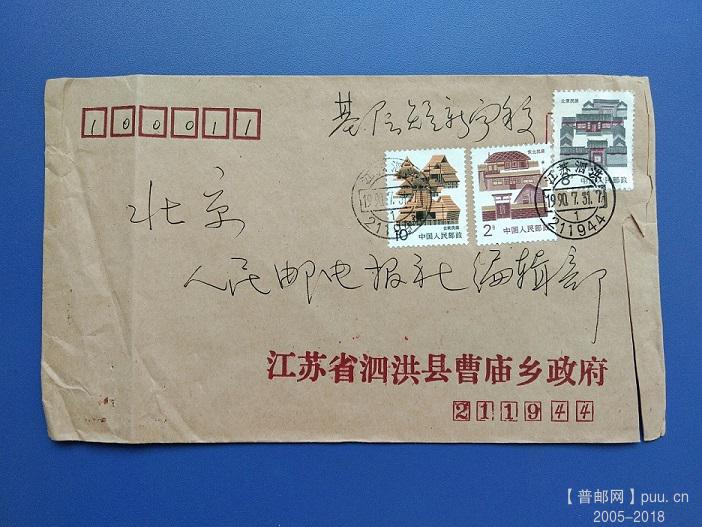 100011
北京民居
江苏泗洪
1990.7.31.7
1
211944
云南民居
10分
中国人民邮政
东北民居
2分
中国人民邮政
8分
中国人民邮政
江苏泗洪
1990.7.31.7
1
211944
北京
人民邮电报社编辑部
江苏省泗洪县曹庙乡政府
211944
【普邮网】puu.cn
2005-2018